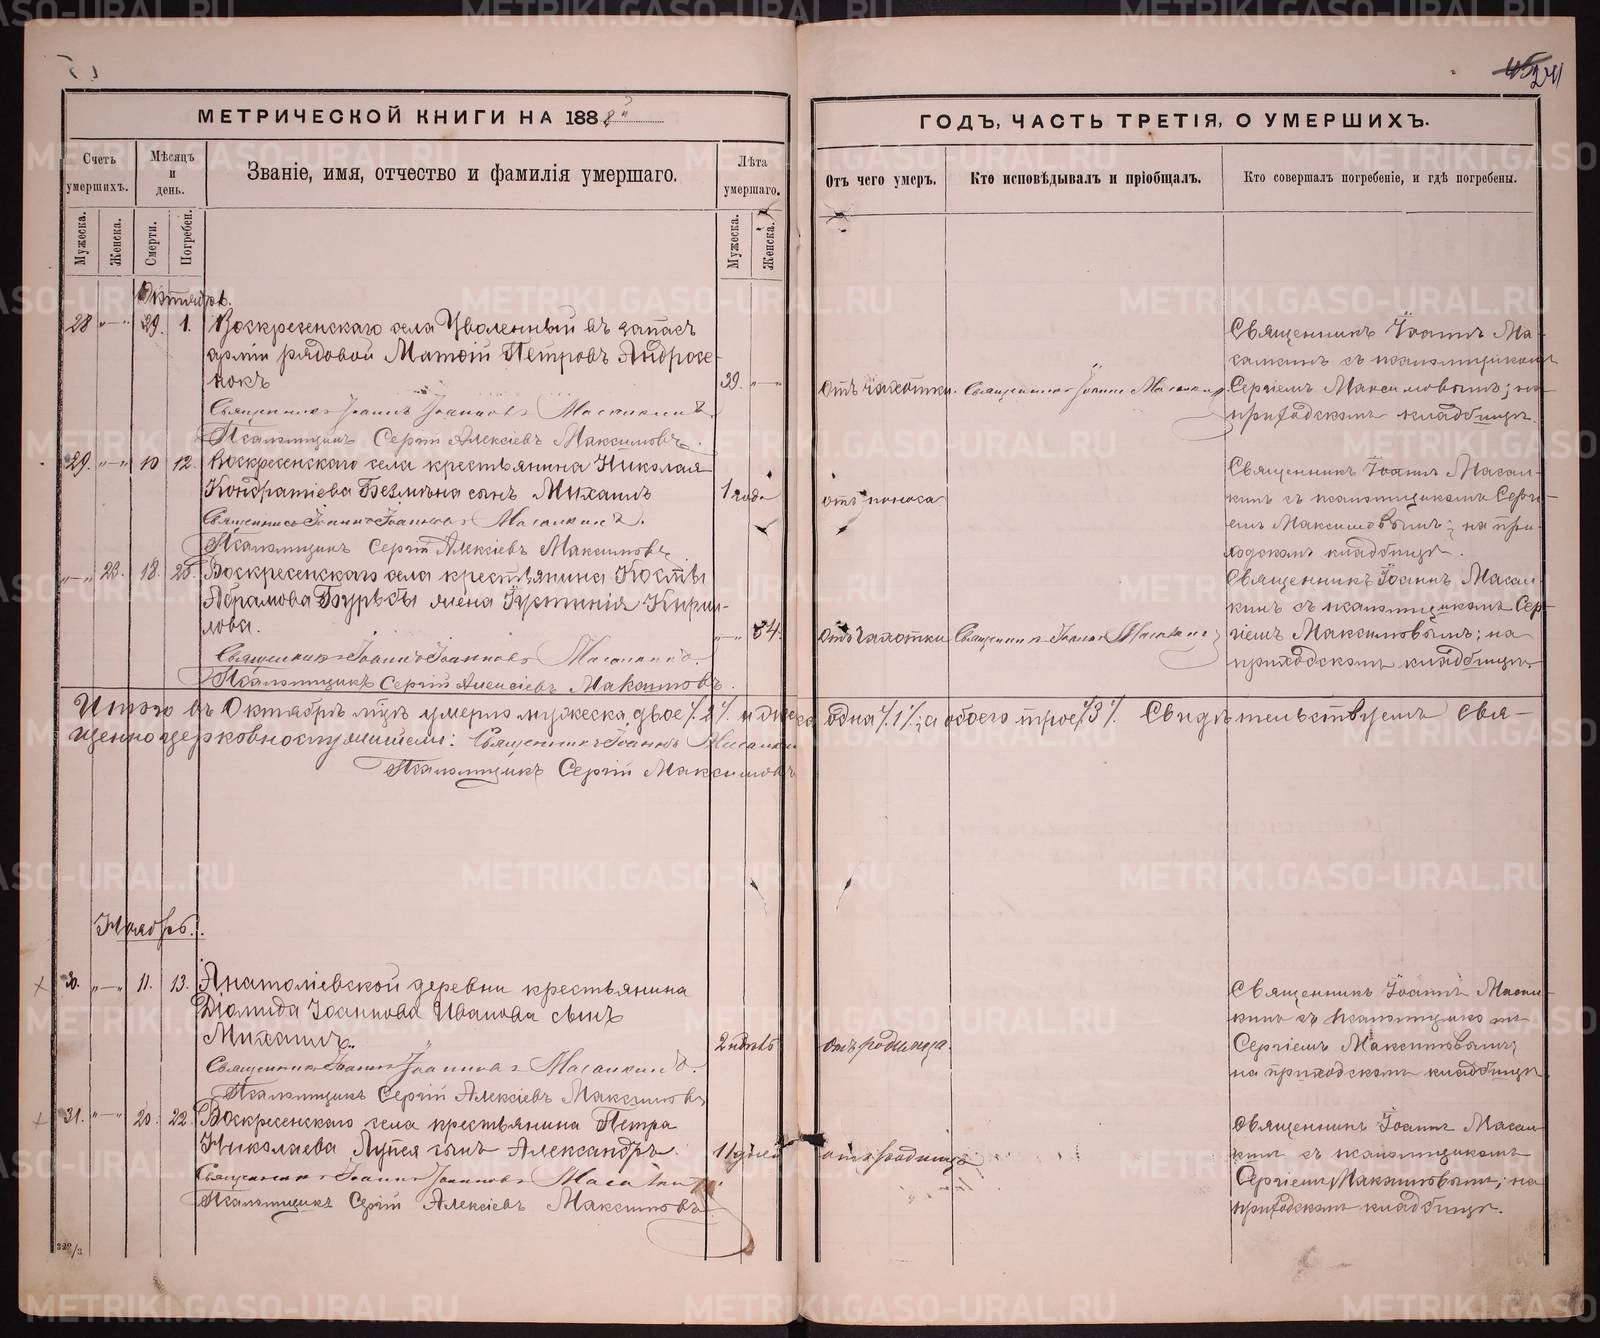 45 241
МЕТРИЧЕСКОЙ КНИГИ НА 1888й
ГОДЪ, ЧАСТЬ ТРЕТІЯ, О УМЕРШИХЪ.
Счетъ умершихъ.
Мѣсяцъ и день.
Званіе, имя, отчество и фамилія умершаго.
Лѣта умершаго.
Отъ чего умеръ.
Кто исповѣдывалъ и пріобщалъ.
Кто совершалъ погребеніе, и гдѣ погребены.
Мужеска.
Женска.
Смерти.
Погребен.
Мужеска.
Женска.
Октябрь.
28 „—„ 29. 1. Воскресенскаго села Уволенный въ запасъ
арміи рядовой Матѳій Петровъ Андросе-
нокъ
39. „—„ отъ чахотки. Священникъ Іоаннъ Масалкинъ
Священникъ Іоаннъ Ма-
салкинъ съ псаломщикомъ
Сергіемъ Максимовымъ; на
приходскомъ кладбищѣ.
Священникъ Іоаннъ Іоанновъ Масалкинъ.
Псаломщикъ Сергій Алексіевъ Максимовъ.
29. „—„ 10 12. Воскресенскаго села крестьянина Николая
Кондратіева сынъ Михаилъ
1 года отъ поноса
Священникъ Іоаннъ Масал-
кинъ съ псаломщикомъ Серги-
емъ Максимовымъ; на при-
ходскомъ кладбищѣ.
Священникъ Іоаннъ Іоанновъ Масалкинъ.
Псаломщикъ Сергій Алексіевъ Максимовъ
„—„ 23. 18. 20. Воскресенскаго села крестьянина
Абрамова жена Іустинія Кирил-
лова.
„—„ 84. отъ чахотки Священникъ Іоаннъ Масалкинъ
Священникъ Іоаннъ Масал-
кинъ съ псаломщикомъ Сер-
гіемъ Максимовымъ; на
приходскомъ кладбищѣ
Священникъ Іоаннъ Іоанновъ Масалкинъ.
Псаломщикъ Сергій Алексіевъ Максимовъ.
Итого въ Октябрѣ м-цѣ умерло мужеска двое /2/. и женска одна /1/; а обоего трое /3/. Свидѣтельствуемъ свя-
щенноцерковнослужители: Священникъ Іоаннъ Масалкинъ
Псаломщикъ Сергій Максимовъ
Ноябрь.
30. „—„ 11. 13. Анатоліевской деревни крестьянина
Діомида Іоаннова Иванова сынъ
Михаилъ.
2 недѣль отъ родимца.
Священникъ Іоаннъ Масал-
кинъ съ псаломщикомъ
Сергіемъ Максимовымъ;
на приходскомъ кладбищѣ
Священникъ Іоаннъ Іоанновъ Масалкинъ.
Псаломщикъ Сергій Алексіевъ Максимовъ
31. „—„ 20. 22. Воскресенскаго села крестьянина Петра
Николаева сынъ Александръ.
11 дней отъ родимца
Священникъ Іоаннъ Масал-
кинъ съ псаломщикомъ
Сергіемъ Максимовымъ; на
приходскомъ кладбищѣ.
Священникъ Іоаннъ Іоанновъ Масалкинъ
Псаломщикъ Сергій Алексіевъ Максимовъ
METRIKI.GASO-URAL.RU